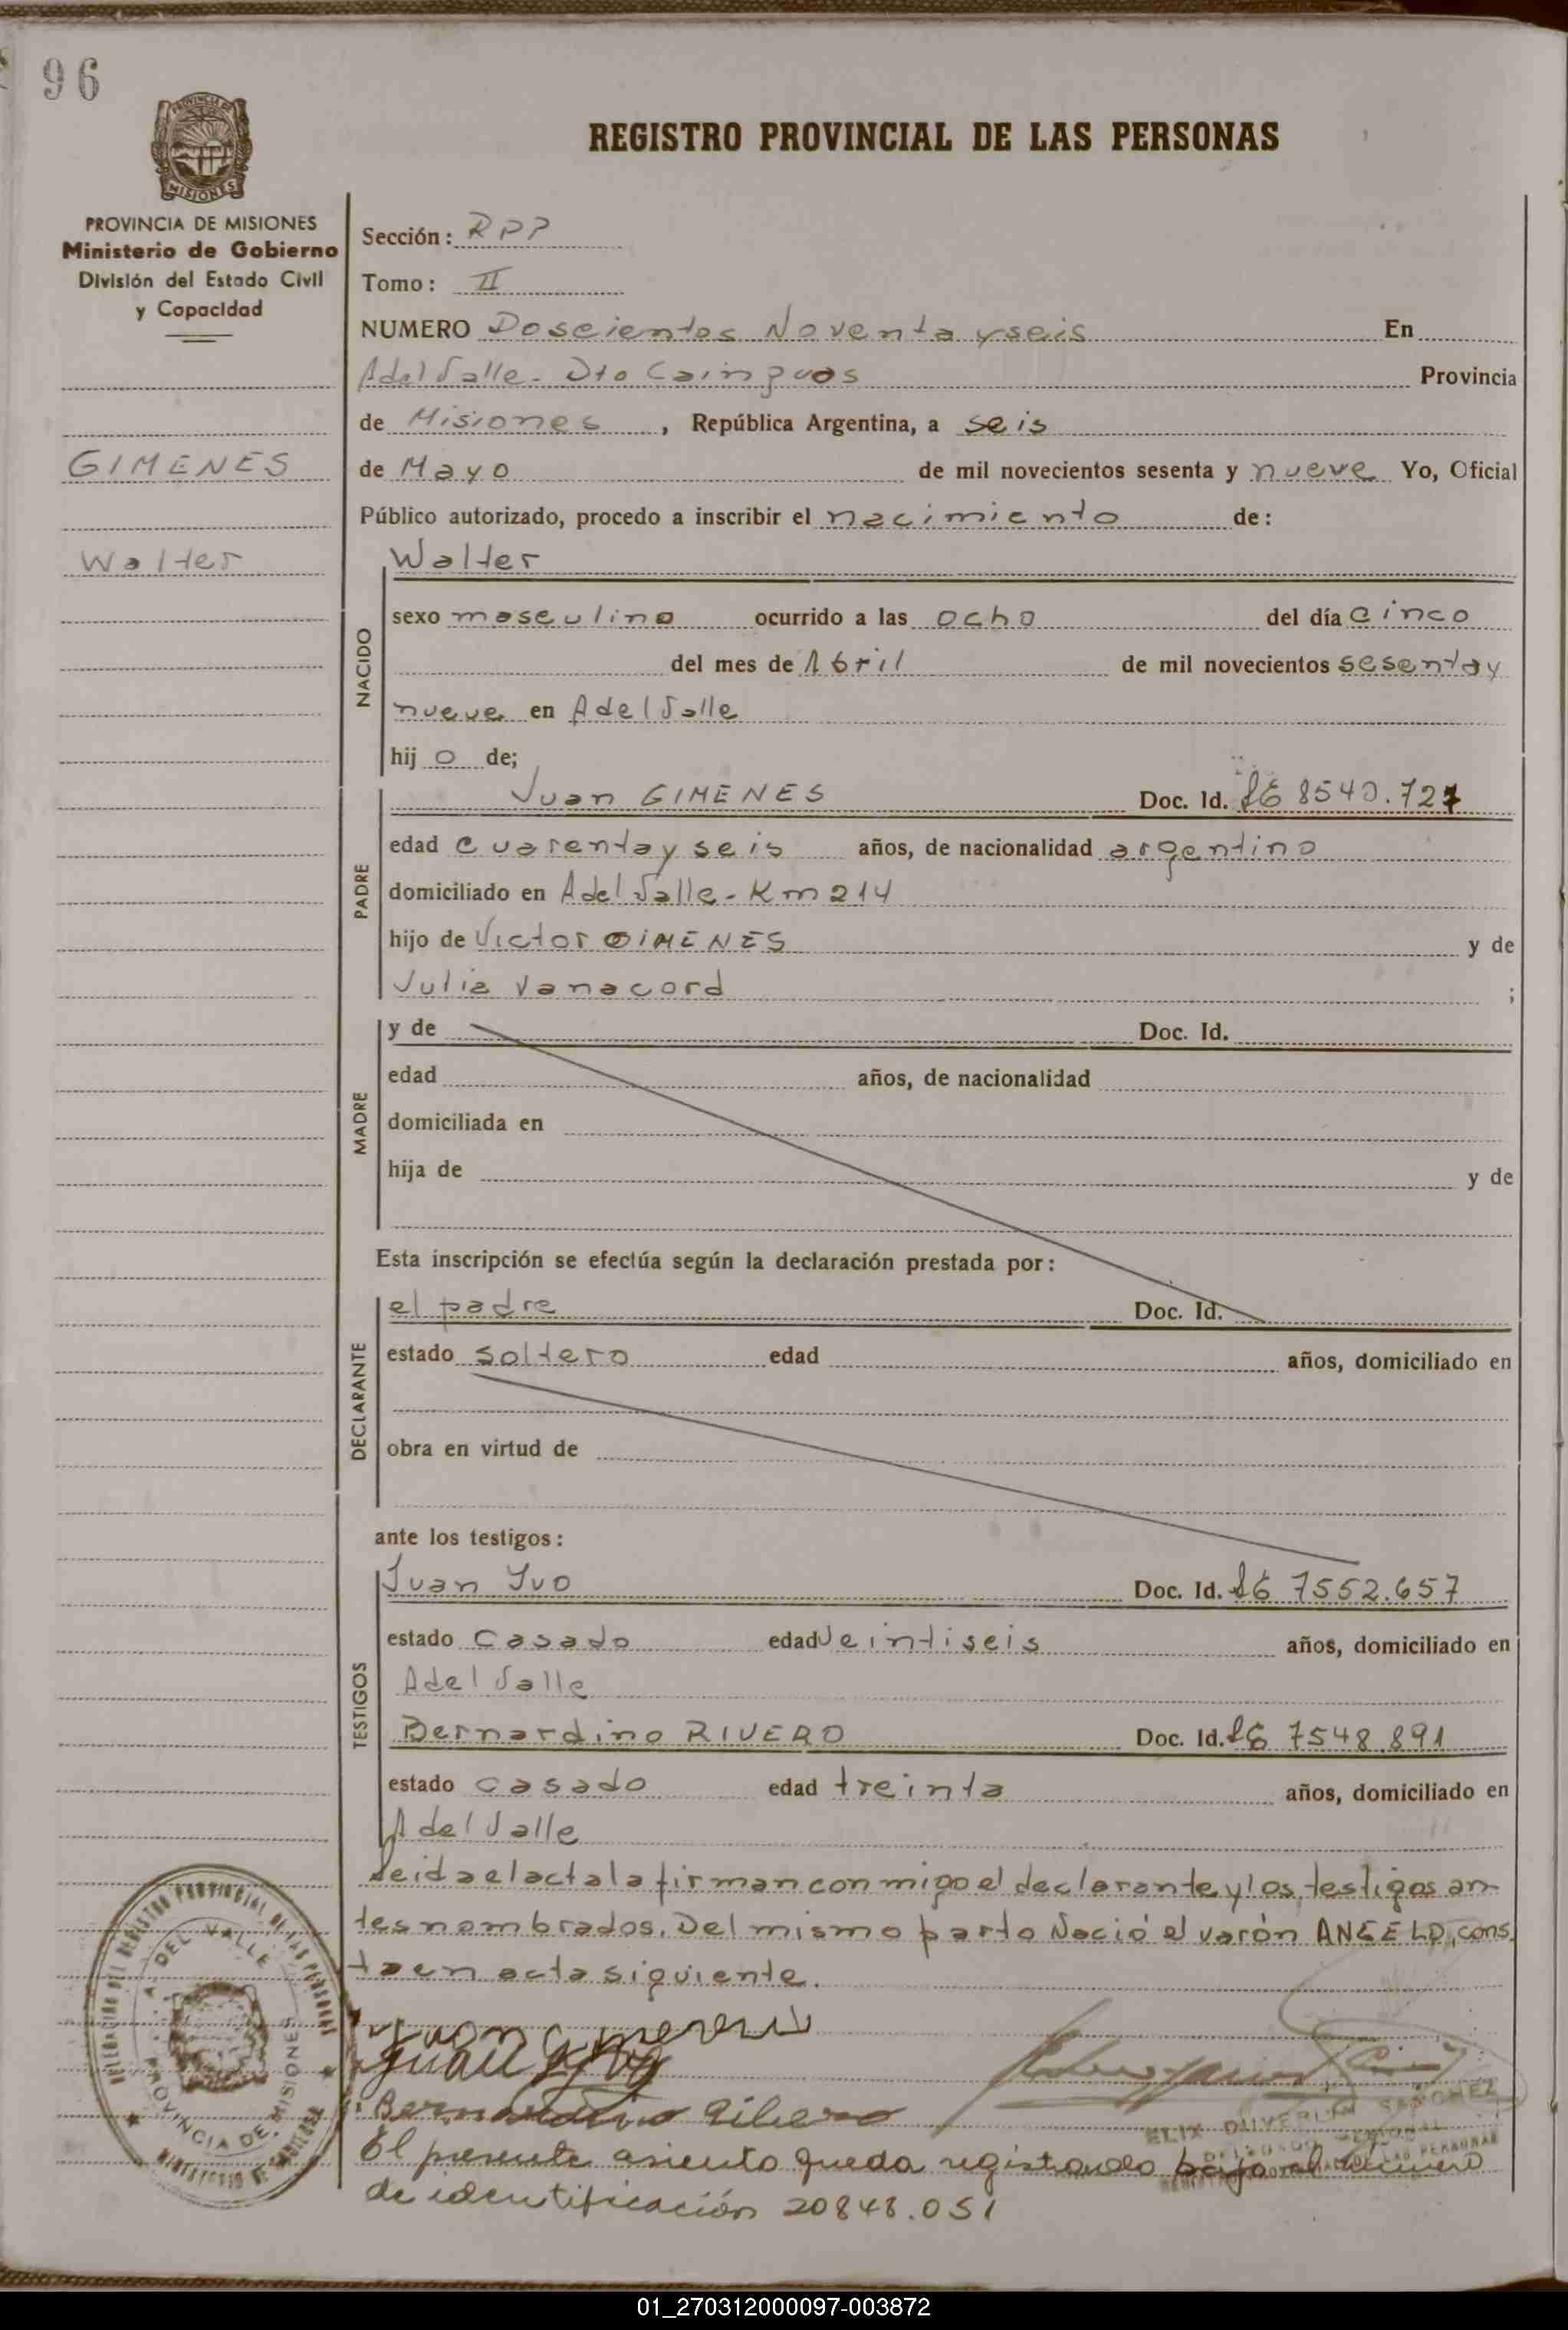 96
MISIONES
REGISTRO PROVINCIAL DE LAS PERSONAS
PROVINCIA DE MISIONES
Ministerio de Gobierno
División del Estado Civil
y Capacidad
GIMENES
Walter
Sección: RPP
Tomo: II
NUMERO Doscientos Noventa y seis En
A del Valle - Dto Cainguas Provincia
de Misiones, República Argentina, a seis
de Mayo de mil novecientos sesenta y nueve Yo, Oficial
Público autorizado, procedo a inscribir el nacimiento de:
NACIDO
Walter
sexo masculino ocurrido a las ocho del día cinco
del mes de Abril de mil novecientos sesenta y
nueve en A del Valle
hij o de;
PADRE
Juan GIMENES Doc. Id. LE 8540.727
edad cuarenta y seis años, de nacionalidad argentino
domiciliado en A del Valle - Km 214
hijo de Victor GIMENES y de
Julia Vanacord ;
MADRE
y de Doc. Id.
edad años, de nacionalidad
domiciliada en
hija de y de
Esta inscripción se efectúa según la declaración prestada por:
DECLARANTE
el padre Doc. Id.
estado soltero edad años, domiciliado en
obra en virtud de
ante los testigos:
TESTIGOS
Juan Yvo Doc. Id. LE 7552.657
estado casado edad Veintiseis años, domiciliado en
A del Valle
Bernardino RIVERO Doc. Id. LE 7548.891
estado casado edad treinta años, domiciliado en
A del Valle
Leida el acta la firman conmigo el declarante y los testigos an-
tes nombrados. Del mismo parto Nació el varón ANGELO, cons
ta en acta siguiente.
Juan
Juan Yvo
Bernardino Ribero
A. DEL VALLE
PROVINCIA DE MISIONES
ELIX DUVERLIN SANCHEZ
El presente asiento queda registrado bajo el número
de identificación 20848.051
01_270312000097-003872